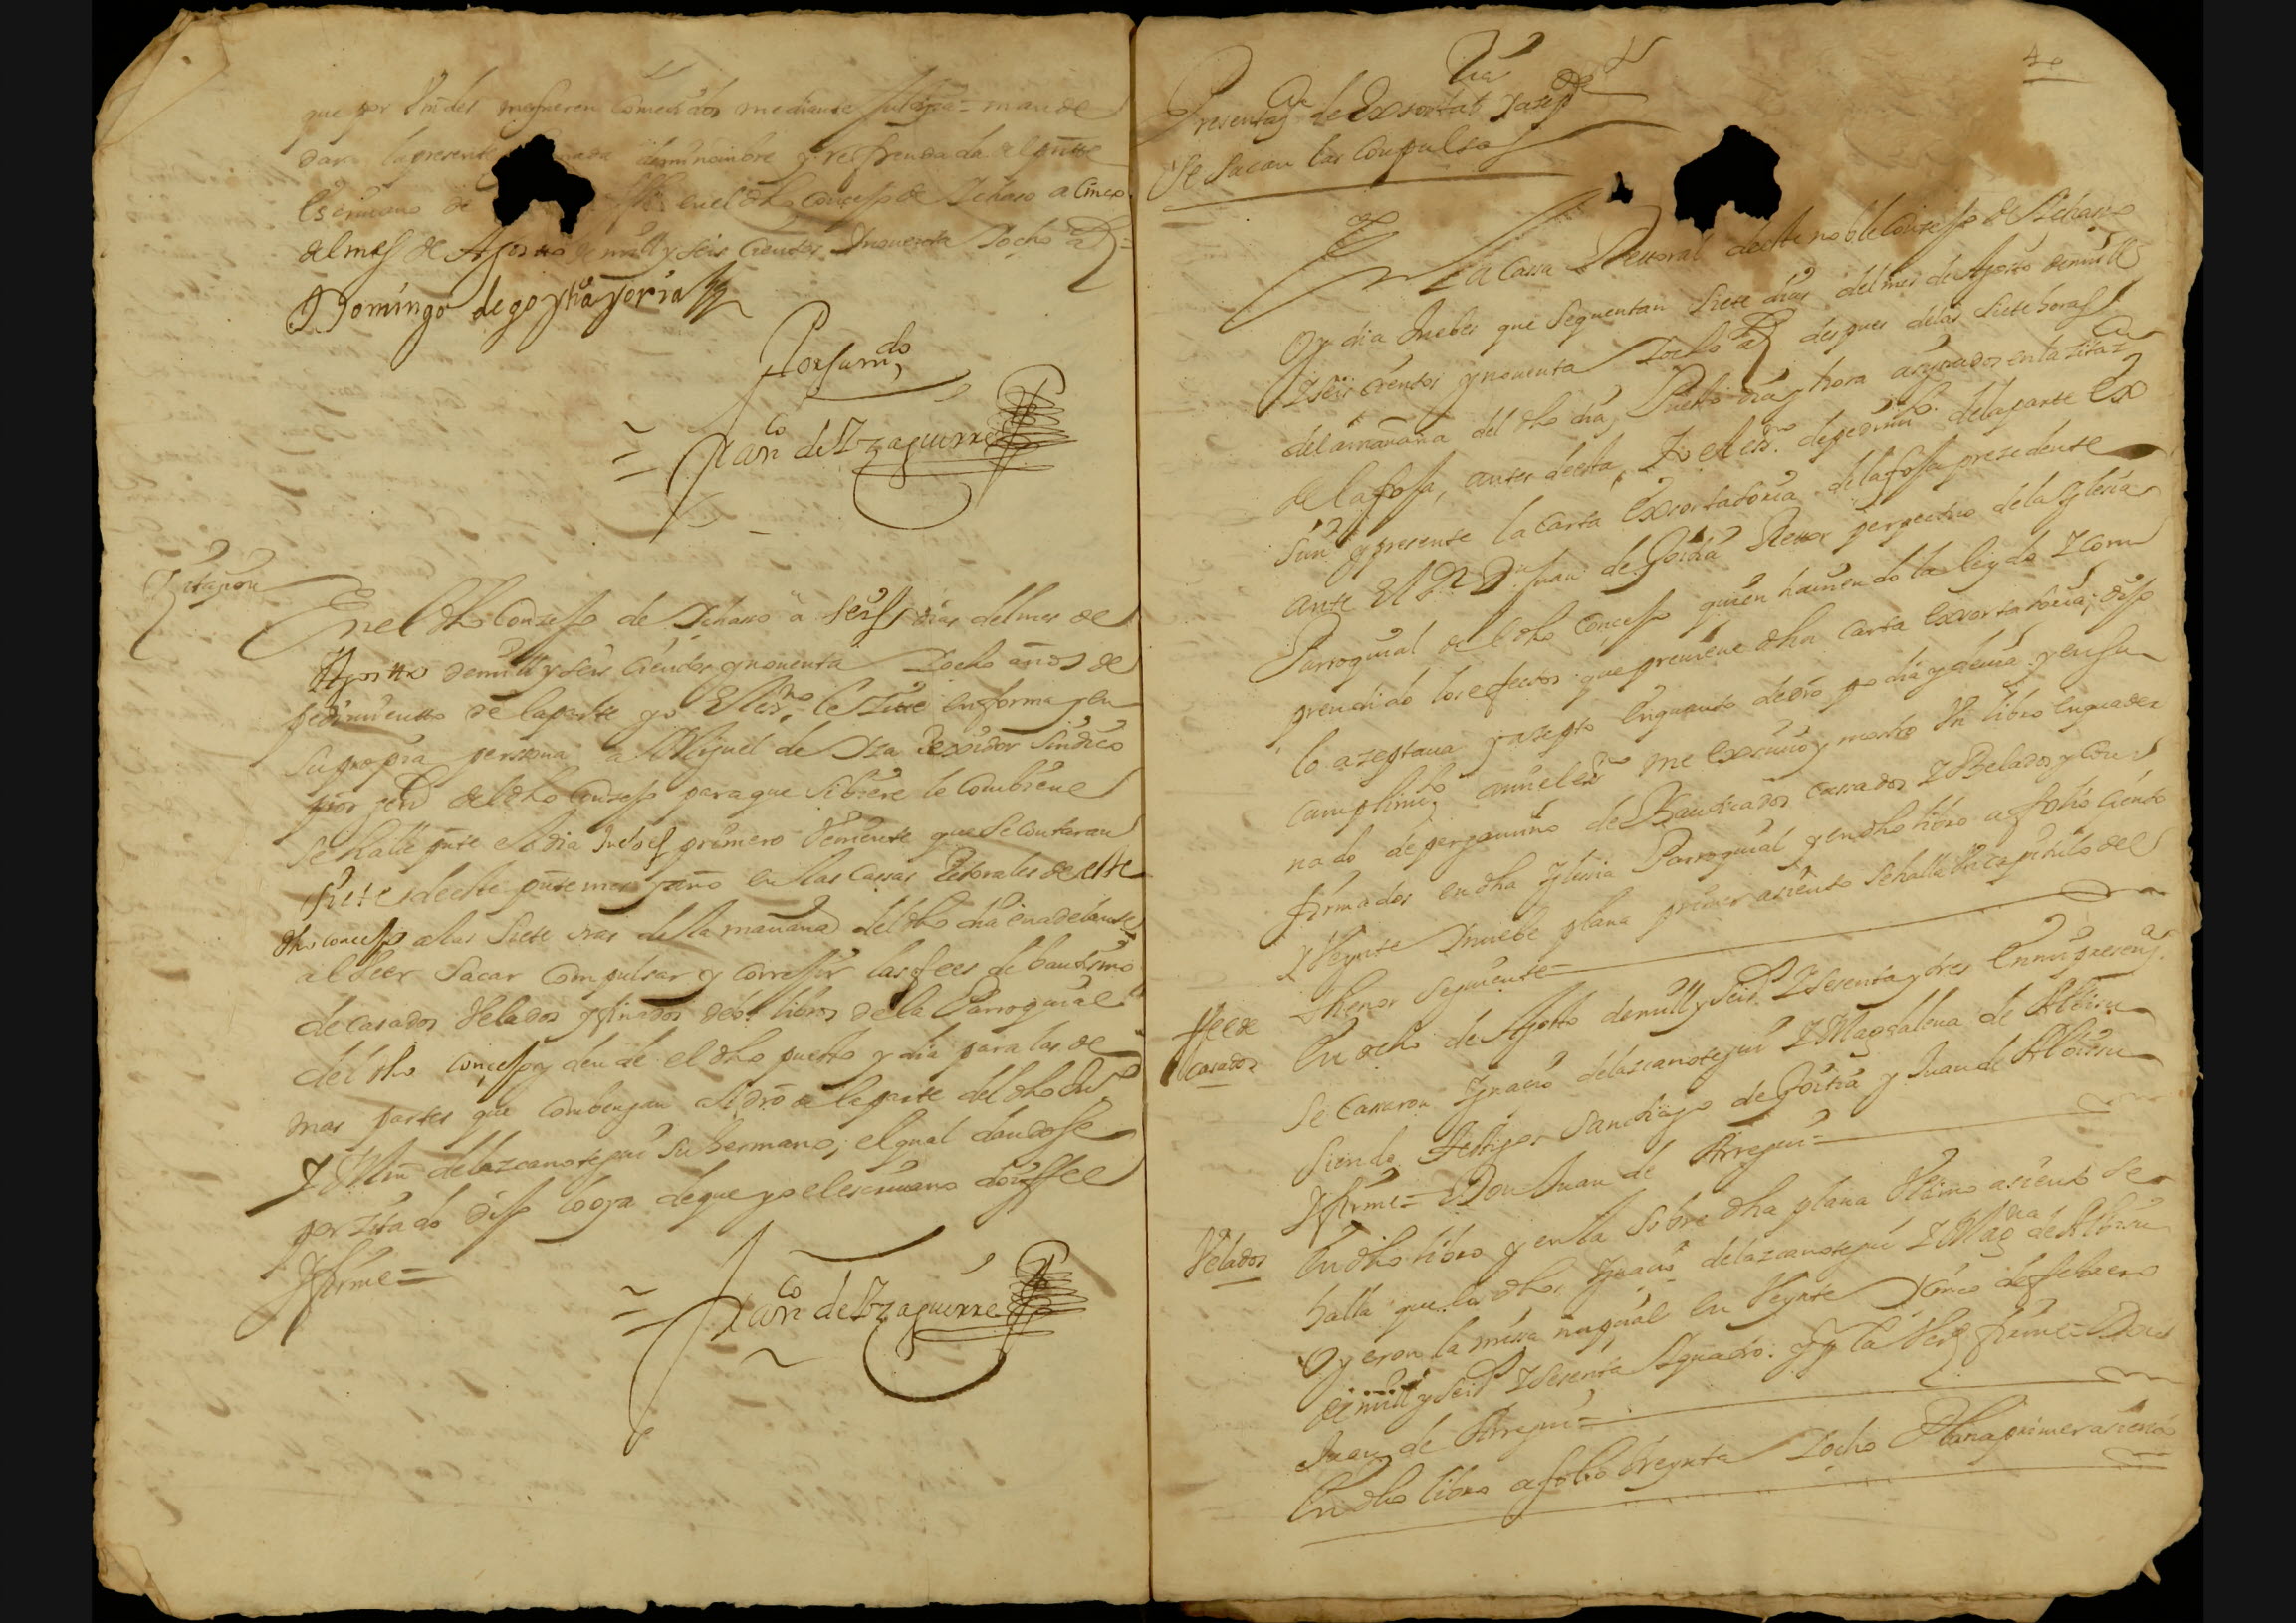 que por Vm des me fueren cometidos mediante Justizia = mande
dar la presente firmada de mi nombre y refrendada del pñte
Escriuano de en el dho concejo de Ichaso a cinco
del mes de Agosto de mill y seis cientos y nouenta y ocho as =
Domingo de goytia yoria
Por su mdo
= Franco de Yzaguirre
Zitazion
En el dho Conzejo de Ichasso a seis dias del mes de
Agosto de mill y seis cientos y nouenta y ocho años de
pedimiento de la parte yo El esno le Zite en forma y en
su propia persona a Miguel de Ysa Rexidor Sindico
prior jenl del dho Conzejo para que si biere le combiene
se halle pnte el dia Juebes primero veniente que se contaran
siete de este pñte mes y año en las Cassas Retorales de este
dho concejo a las siete oras de la mañana del dho dia en adelante
al beer sacar compulsar y correjir las fees de bautismo
de casados Velados y finados de los libros de la Parroquial
del dho concejo y dende el dho puesto y dia para las de
mas partes que combengan al dro de la parte del dho
y Mrn de lazcanotegui su hermano; el qual dandosse
por zitado dijo lo oya de que yo el escriuano doy ffee
y firme =
= Franco de Yzaguirre
40
Presentazon de Exsortata y azepon
Se sacan las compulsas
En La Cassa Rettoral de este noble Conzejo de Ichasso
Oy dia Juebes que se quentan siete dias del mes de Agosto de mill
y seis cientos y nouenta y ocho as despues de las siete horas
de la mañana del dho dia, Puesto dia y hora asinados en la zitazon
de la foja, antes de esta, Yo el esno de pedimto de la parte Ex
hiui y presente la Carta Exsortatoria de la foja prezedente
ante El Sr Dn Juan de Goitia Rettor perpetuo de la Yglesia
Parroquial del dho Concejo quien hauiendo la leydo y com
prendido los efectos que preuiene dha carta exsortatoria; dijo
lo azeptaua y azepto en quanto de dro podia y deuia y en su
cumplimto a mi el esno me exsiuio y mostro Vn libro enquader
nado de pergamino de Bautizados cassados y Belados y Con
firmados en dha Yglesia Parroquial y en dho libro a folio ciento
y Veynte y nuebe plana primer asiento se halla Vn capitulo del
thenor siguiente =
ffee de
casados
En ocho de Agosto de mill y seiss y sesenta y tres En mi presena
Se Cassaron Ygnacio de lascanotegui y Magdalena de Albisu
siendo testigos Santiago de Goitia y Juan de Albisu
y firme = Don Juan de Arregui =
Velados
En dho libro y en la sobre dha plana Vltimo asiento se
halla que los dhos Ygnacio de lazcanotegui y Magda de Albisu
Oyeron la missa nupcial en Veynte y Cinco de febrero
de mill y seiss y sesenta y quatro. y firme = Don
Juan de Arregui =
En dho libro a folio treynta y ocho Plana primer asiento